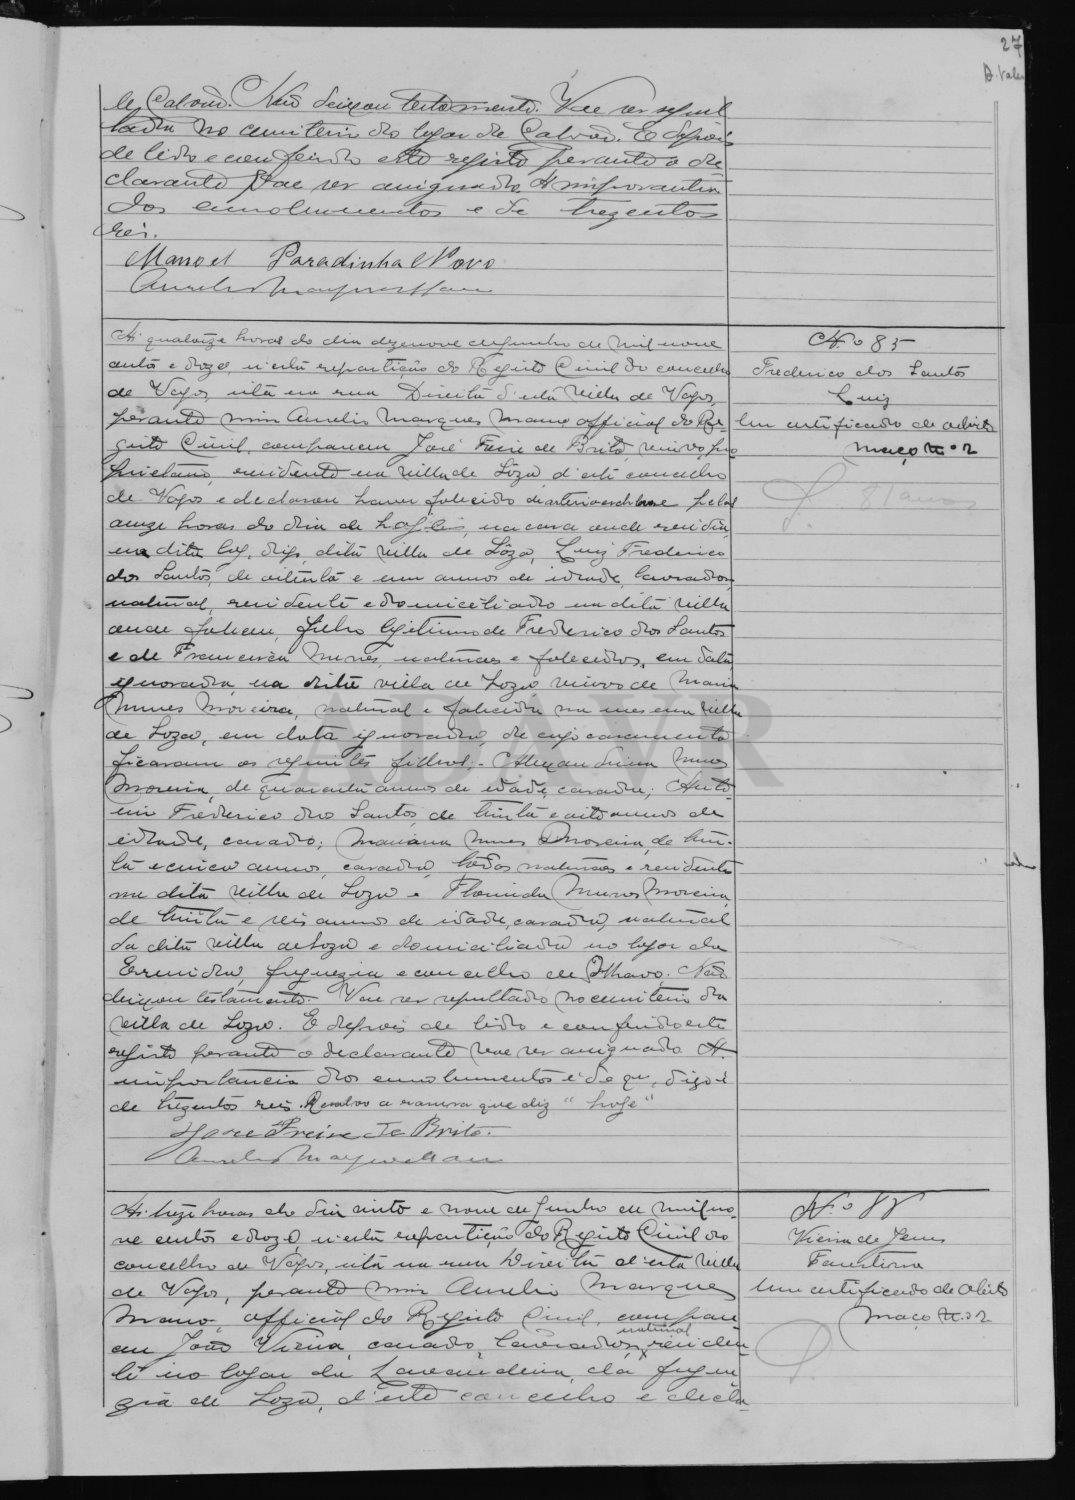 27
de Calvão. Não deixou testamento. Vae ser sepul
tada no cemiterio do logar de Calvão. E depois
de lido e conferido este registo perante o de
clarante vae ser assignado. A importancia
dos emolumentos e de trezentos
reis.
Manoel Paradinha Novo
Aurelio Marques Mano
Ás quatorze horas do dia dezenove de junho de mil nove
centos e doze, n'esta repartição do Registo Civil do concelho
de Vagos, sita na rua Direita d'esta villa de Vagos,
perante mim Aurelio Marques Mano official do Re-
gisto Civil, compareceu José Freire de Brito, viuvo, pro
prietario, residente na villa de Sôza, d'este concelho
de Vagos e declarou haver fallecido de arterioesclerose pelas
onze horas do dia de hoje, na casa onde residia,
na dita log, digo, dita villa de Sôza, Luiz Frederico
dos Santos, de oitenta e um annos de idade, lavrador,
natural, residente e domiciliado na dita villa
onde faleceu, filho legitimo de Frederico dos Santos
e de Francisca Nunes, naturaes e falecidos, em data
ignorada, na dita villa de Soza viuvo de Maria
Nunes Moreira, natural e falecida na mesma villa
de Soza, em data ignorada, de cujo casamento
ficaram os seguintes filhos:- Alexandrina Nunes
Moreira, de quarenta annos de idade, casada; Anto-
nio Frederico dos Santos, de trinta e oito annos de
idade, casado; Mariana Nunes Moreira, de trin-
ta e cinco annos, casada, todos naturaes e residentes
na dita villa de Soza e Florinda Nunes Moreira,
de trinta e seis annos de idade, casada, natural
da dita villa de Soza e domiciliada no logar da
Ermida, freguezia e concelho de Ilhavo. Não
deixou testamento. Vae ser sepultado no cemiterio da
villa de Soza. E depois de lido e conferido este
registo perante o declarante vae ser assignado. A
importancia dos emolumentos é de qu, digo é
de trezentos reis. Resalvo a rasura que diz "hoje"
José Freire de Brito.
Aurelio Marques Mano
N.º 85
Frederico dos Santos
Luiz
Um certificado de obito
Maço n.º 2
81 anos
Ás treze horas do dia vinte e nove de Junho de mil no-
ve centos e doze n'esta repartição do Registo Civil do
concelho de Vagos, sita na rua Direita d'esta villa
de Vagos, perante mim Aurelio Marques
Mano, official do Registo Civil, compare
ceu João Vieira, casado, lavrador, natural, residen-
te no logar da Lavandeira, da fregue
zia de Soza, d'este concelho e decla-
N.º 88
Vieira de Jesus
Faustina
Um certificado de obito
Maço n.º 2
ADAVR